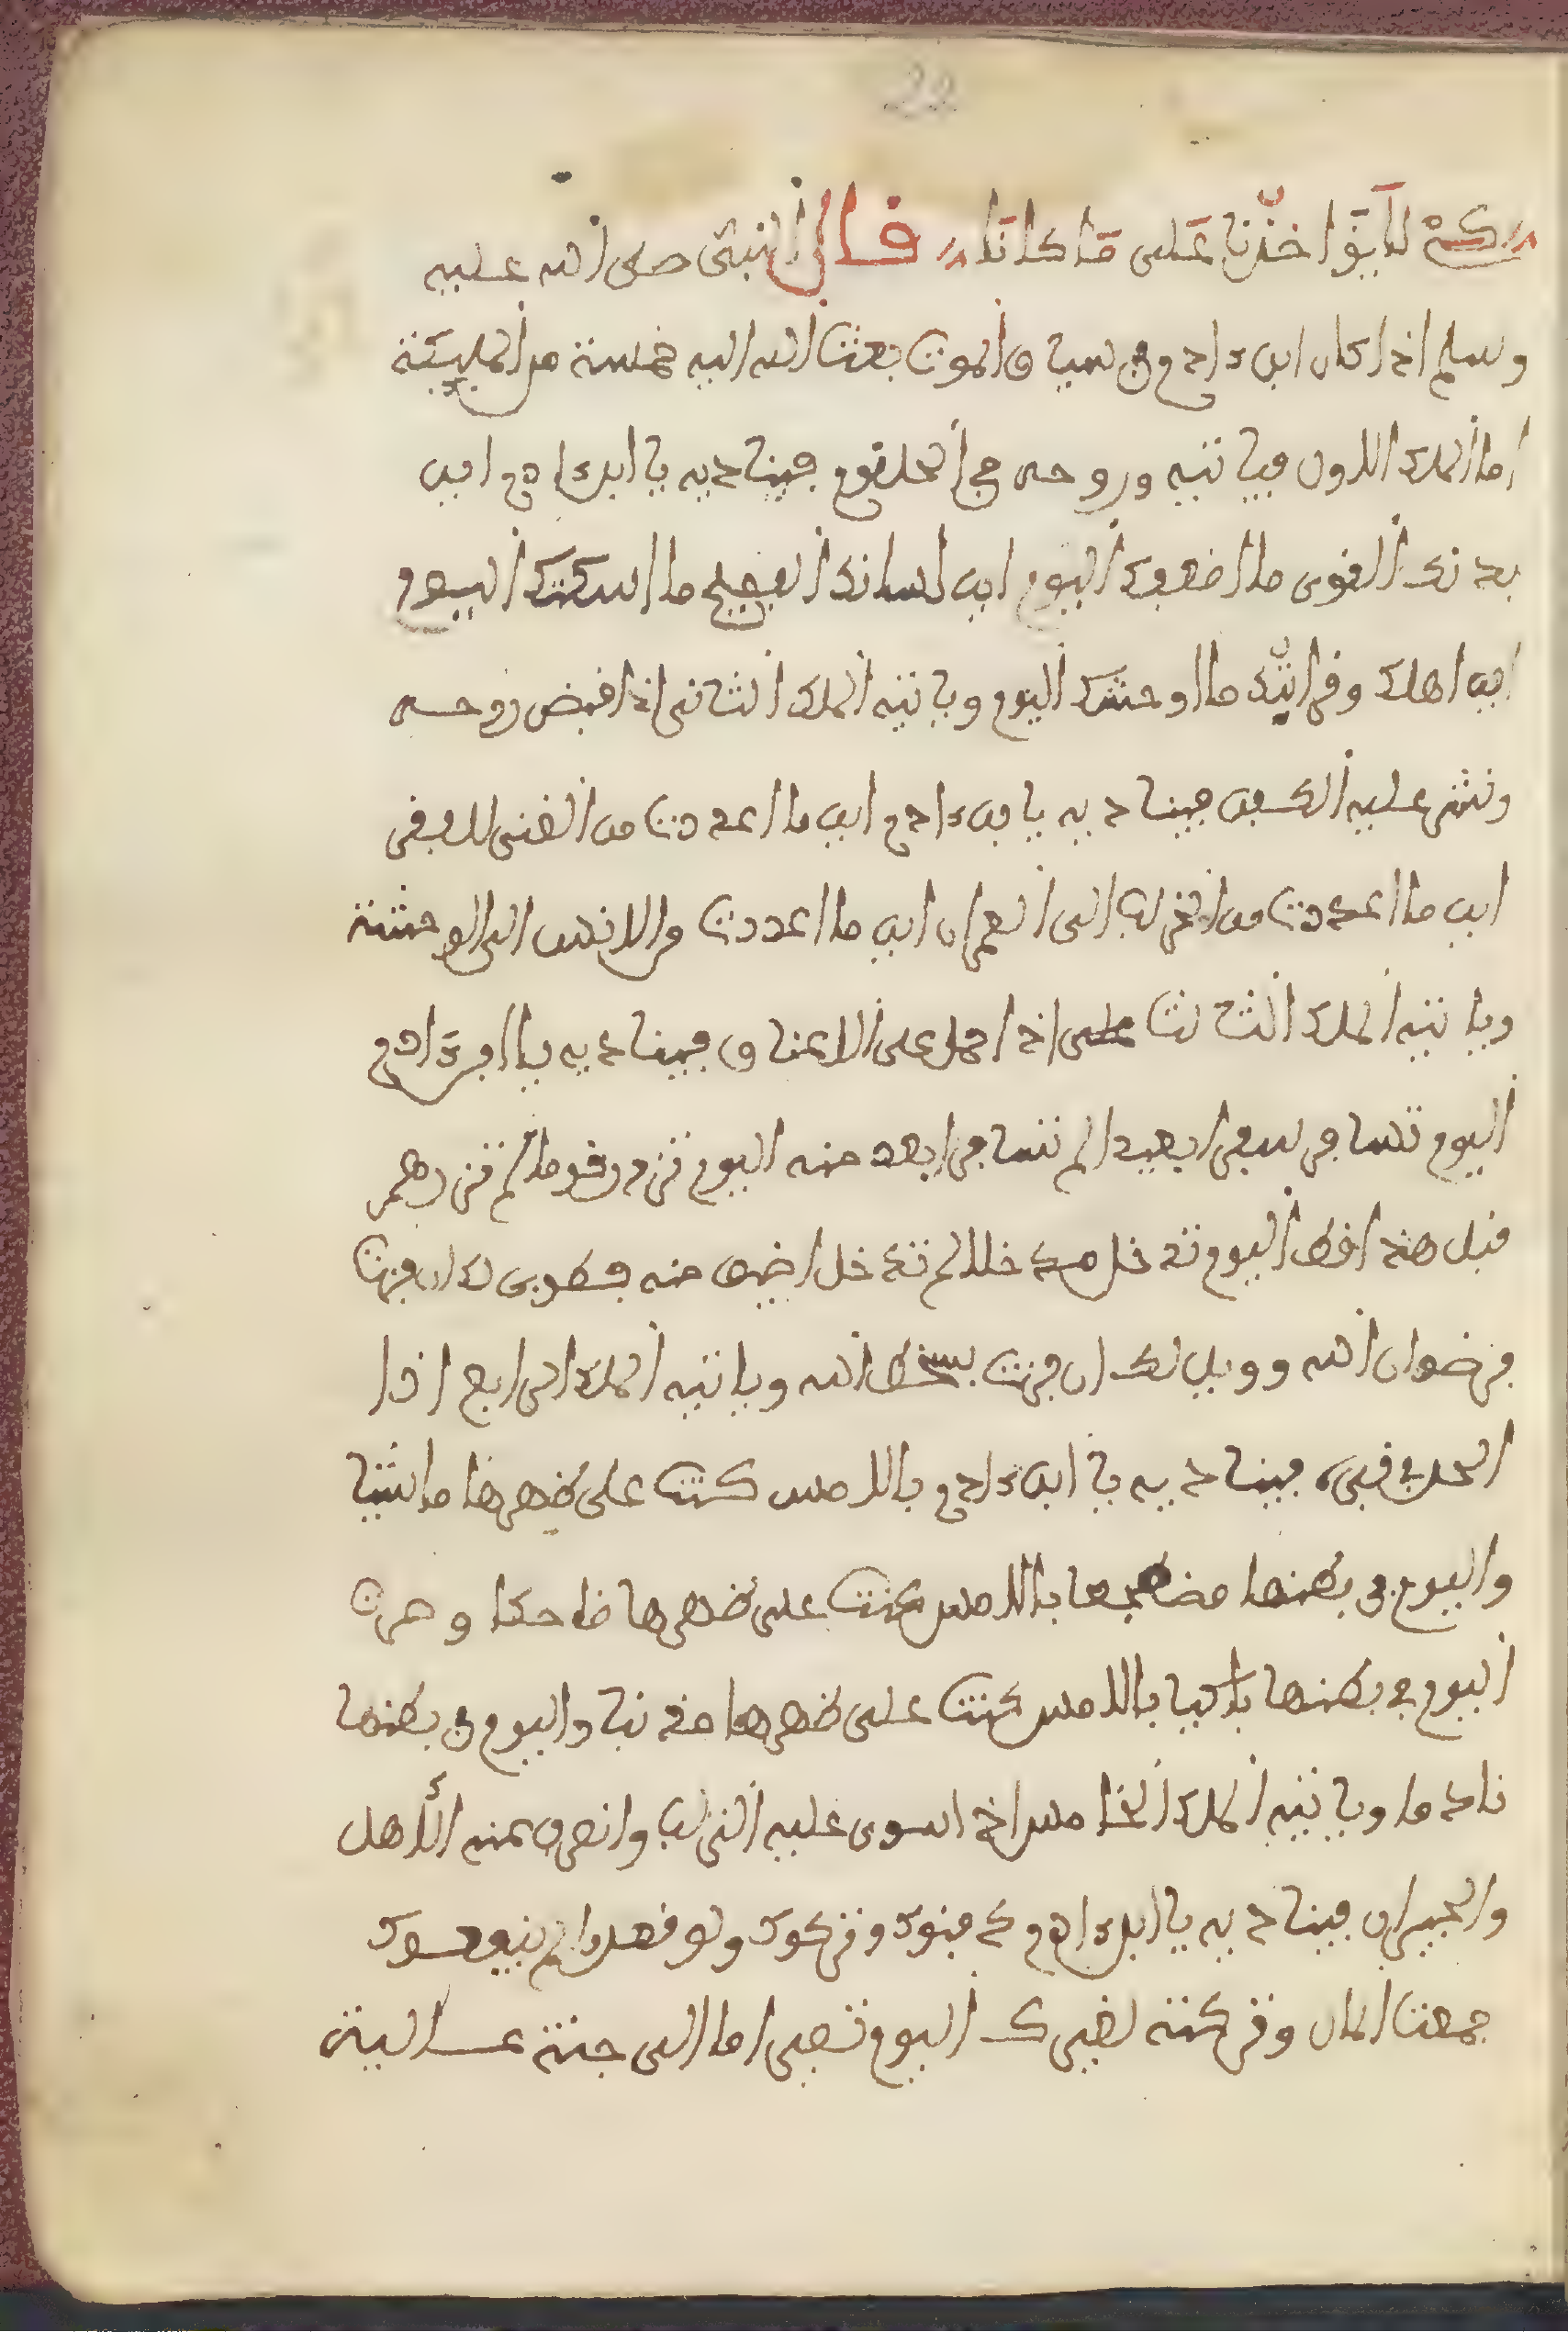 22
كم لا يؤاخذنا على ما كانا قال النبي صلى الله عليه
وسلم اذا كان ابن ءادم في سياق الموت بعث الله اليه خمسة من المليكة
اما الملك الاول فياتيه وروحه في الحلقوم فيناديه يا ابن ءادم اين
بدنك القوى ما اضعفك اليوم اين لسانك الفصيح ما اسكتك اليوم
اين اهلك وقرابتك ما اوحشك اليوم وياتيه الملك الثاني اذا قبض روحه
ونشر عليه الكفن فيناديه يا بن ءادم اين ما اعددت من الغنى للفقر
اين ما اعددت من الخراب الى العمران اين ما اعددت من الانس الى الوحشة
وياتيه الملك الثالث اذا حمل على الاعناق فيناديه يا ابن ءادم
اليوم تسافر سفرا بعيدا لم تسافر ابعد منه اليوم تزور قوما لم تزرهم
قبل هذا قط اليوم تدخل مدخلا لم تدخل اضيق منه فطوبى لك ان فزت
برضوان الله وويل لك ان فزت بسخط الله وياتيه الملك الرابع اذا
الحد في قبره فيناديه يا ابن ءادم بالامس كنت على ظهرها ماشيا
واليوم في بطنها مضطجعا بالامس كنت على ظهرها ضاحكا وصرت
اليوم في بطنها باكيا بالامس كنت على ظهرها مذنبا واليوم في بطنها
نادما وياتيه الملك الخامس اذا سوى عليه التراب وانصرف عنه الاهل
والجيران فيناديه يا ابن ءادم دفنوك وتركوك ولو قعدوا لم ينفعوك
جمعت المال وتركته لغيرك اليوم تصير اما الى جنة عالية